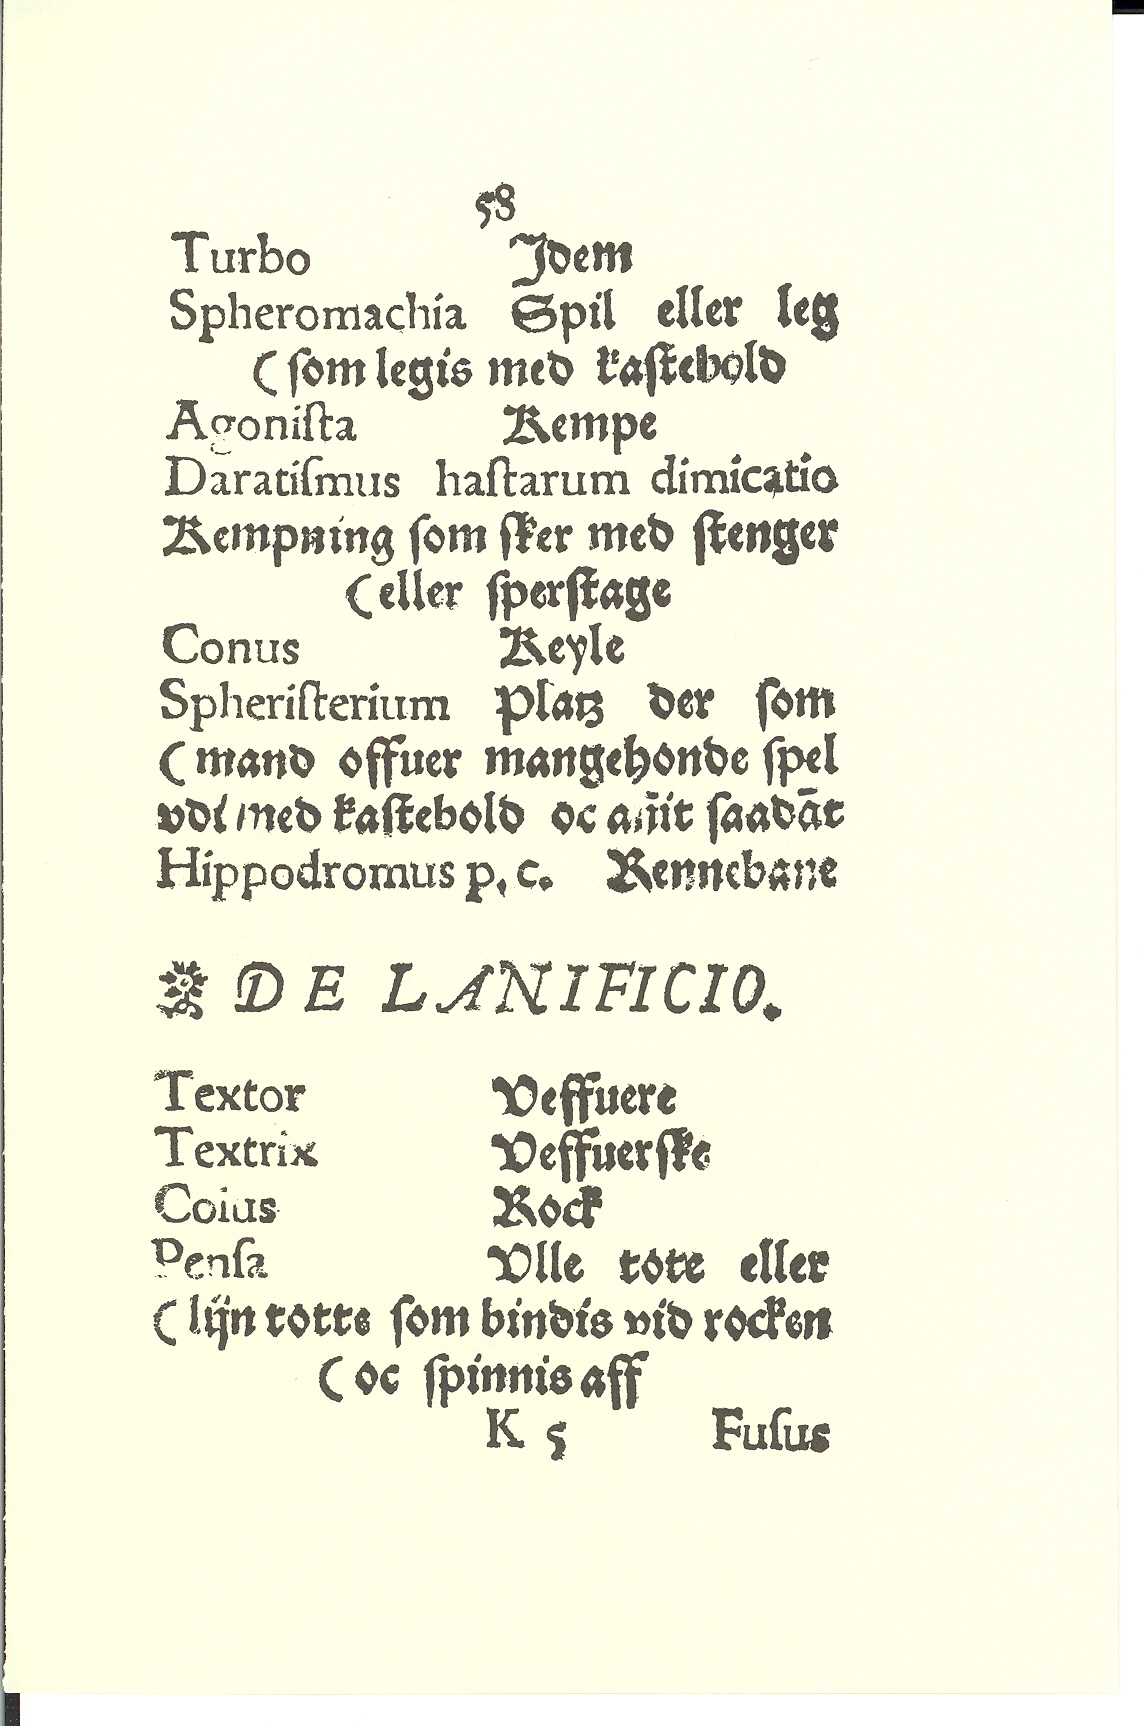 58
Turbo Idem
Spheromachia Spil eller leg
(ſom legis med kaſtebold
Agoniſta Kempe
Daratiſmus haſtarum dimicatio
Kempning ſom ſker med ſtenger
(eller ſperſtage
Conus Keyle
Spheriſterium Platz der ſom
(mand offuer mangehonde ſpel
vdi med kaſtebold oc an̄it ſaadāt
Hippodromus p, c. Rennebane
DE LANIFICIO.
Textor Veffuere
Textrix Veffuerſke
Coius Rock
Penſa Vlle tote eller
(lijn totte ſom bindis vid rocken
(oc ſpinnis aff
K 5 Fuſus